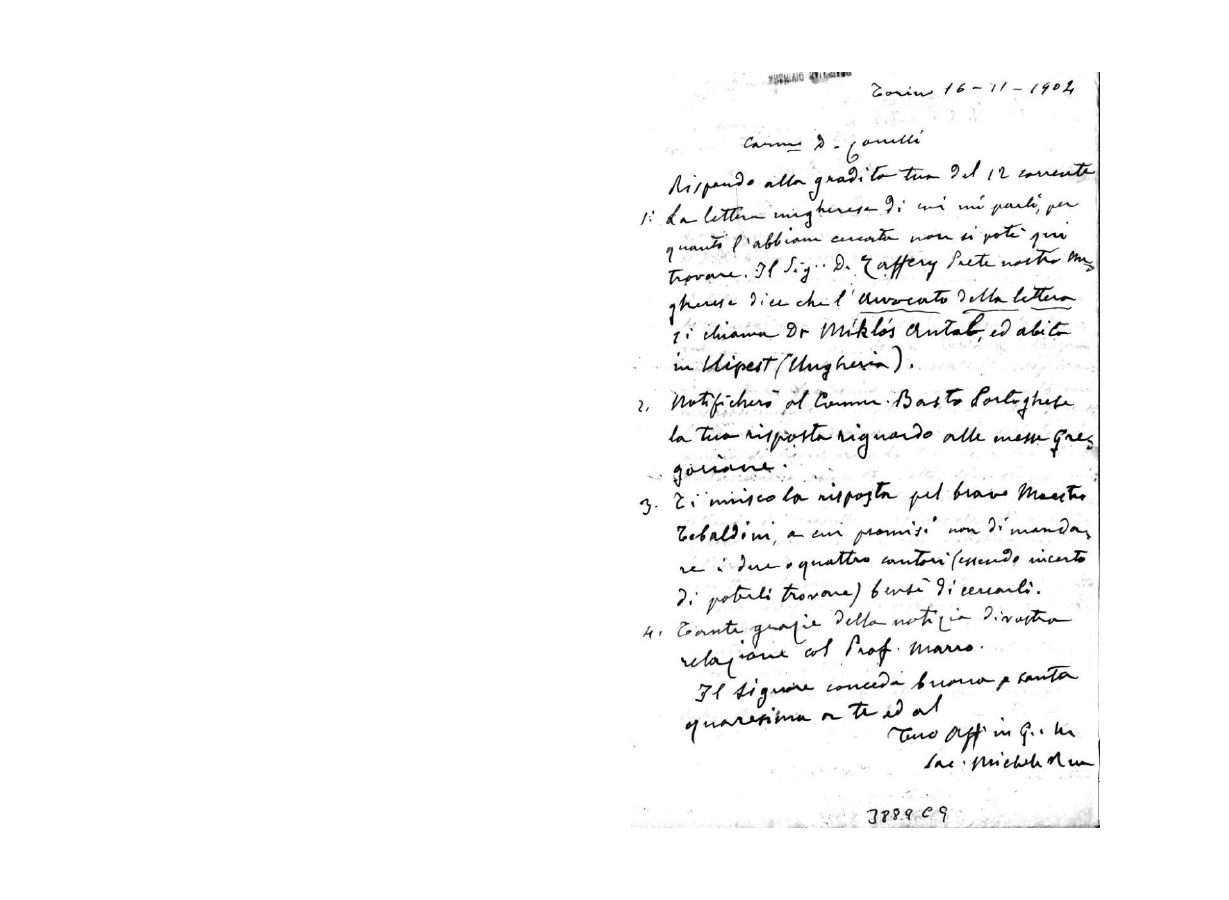 Torino 16-11-1902
Carmo D. Conelli
Rispondo alla gradita tua del 12 corrente
1: La lettera ungherese di cui mi parli, per
quanto l'abbiam cercata non si potè qui
trovare. Il Sig. D. Zaffery Prete nostro un-
gherese dice che l'avvocato della lettera
si chiama Dr Miklós Antal, ed abita
in Uipest (Ungheria).
2. Notificherò al Comm. Basto Portoghese
la tua risposta riguardo alle messe Gre-
goriane.
3. Ti unisco la risposta pel bravo Maestro
Tebaldini, a cui promisi non di manda-
re i due o quattro cantori (essendo incerto
di poterli trovare) bensì di cercarli.
4. Tante grazie della notizia di vostra
relazione col Prof. Marro.
Il Signore conceda buona e santa
quaresima a te ed al
Tuo aff in G. e M
Sac. Michele Rua
3889 C 9